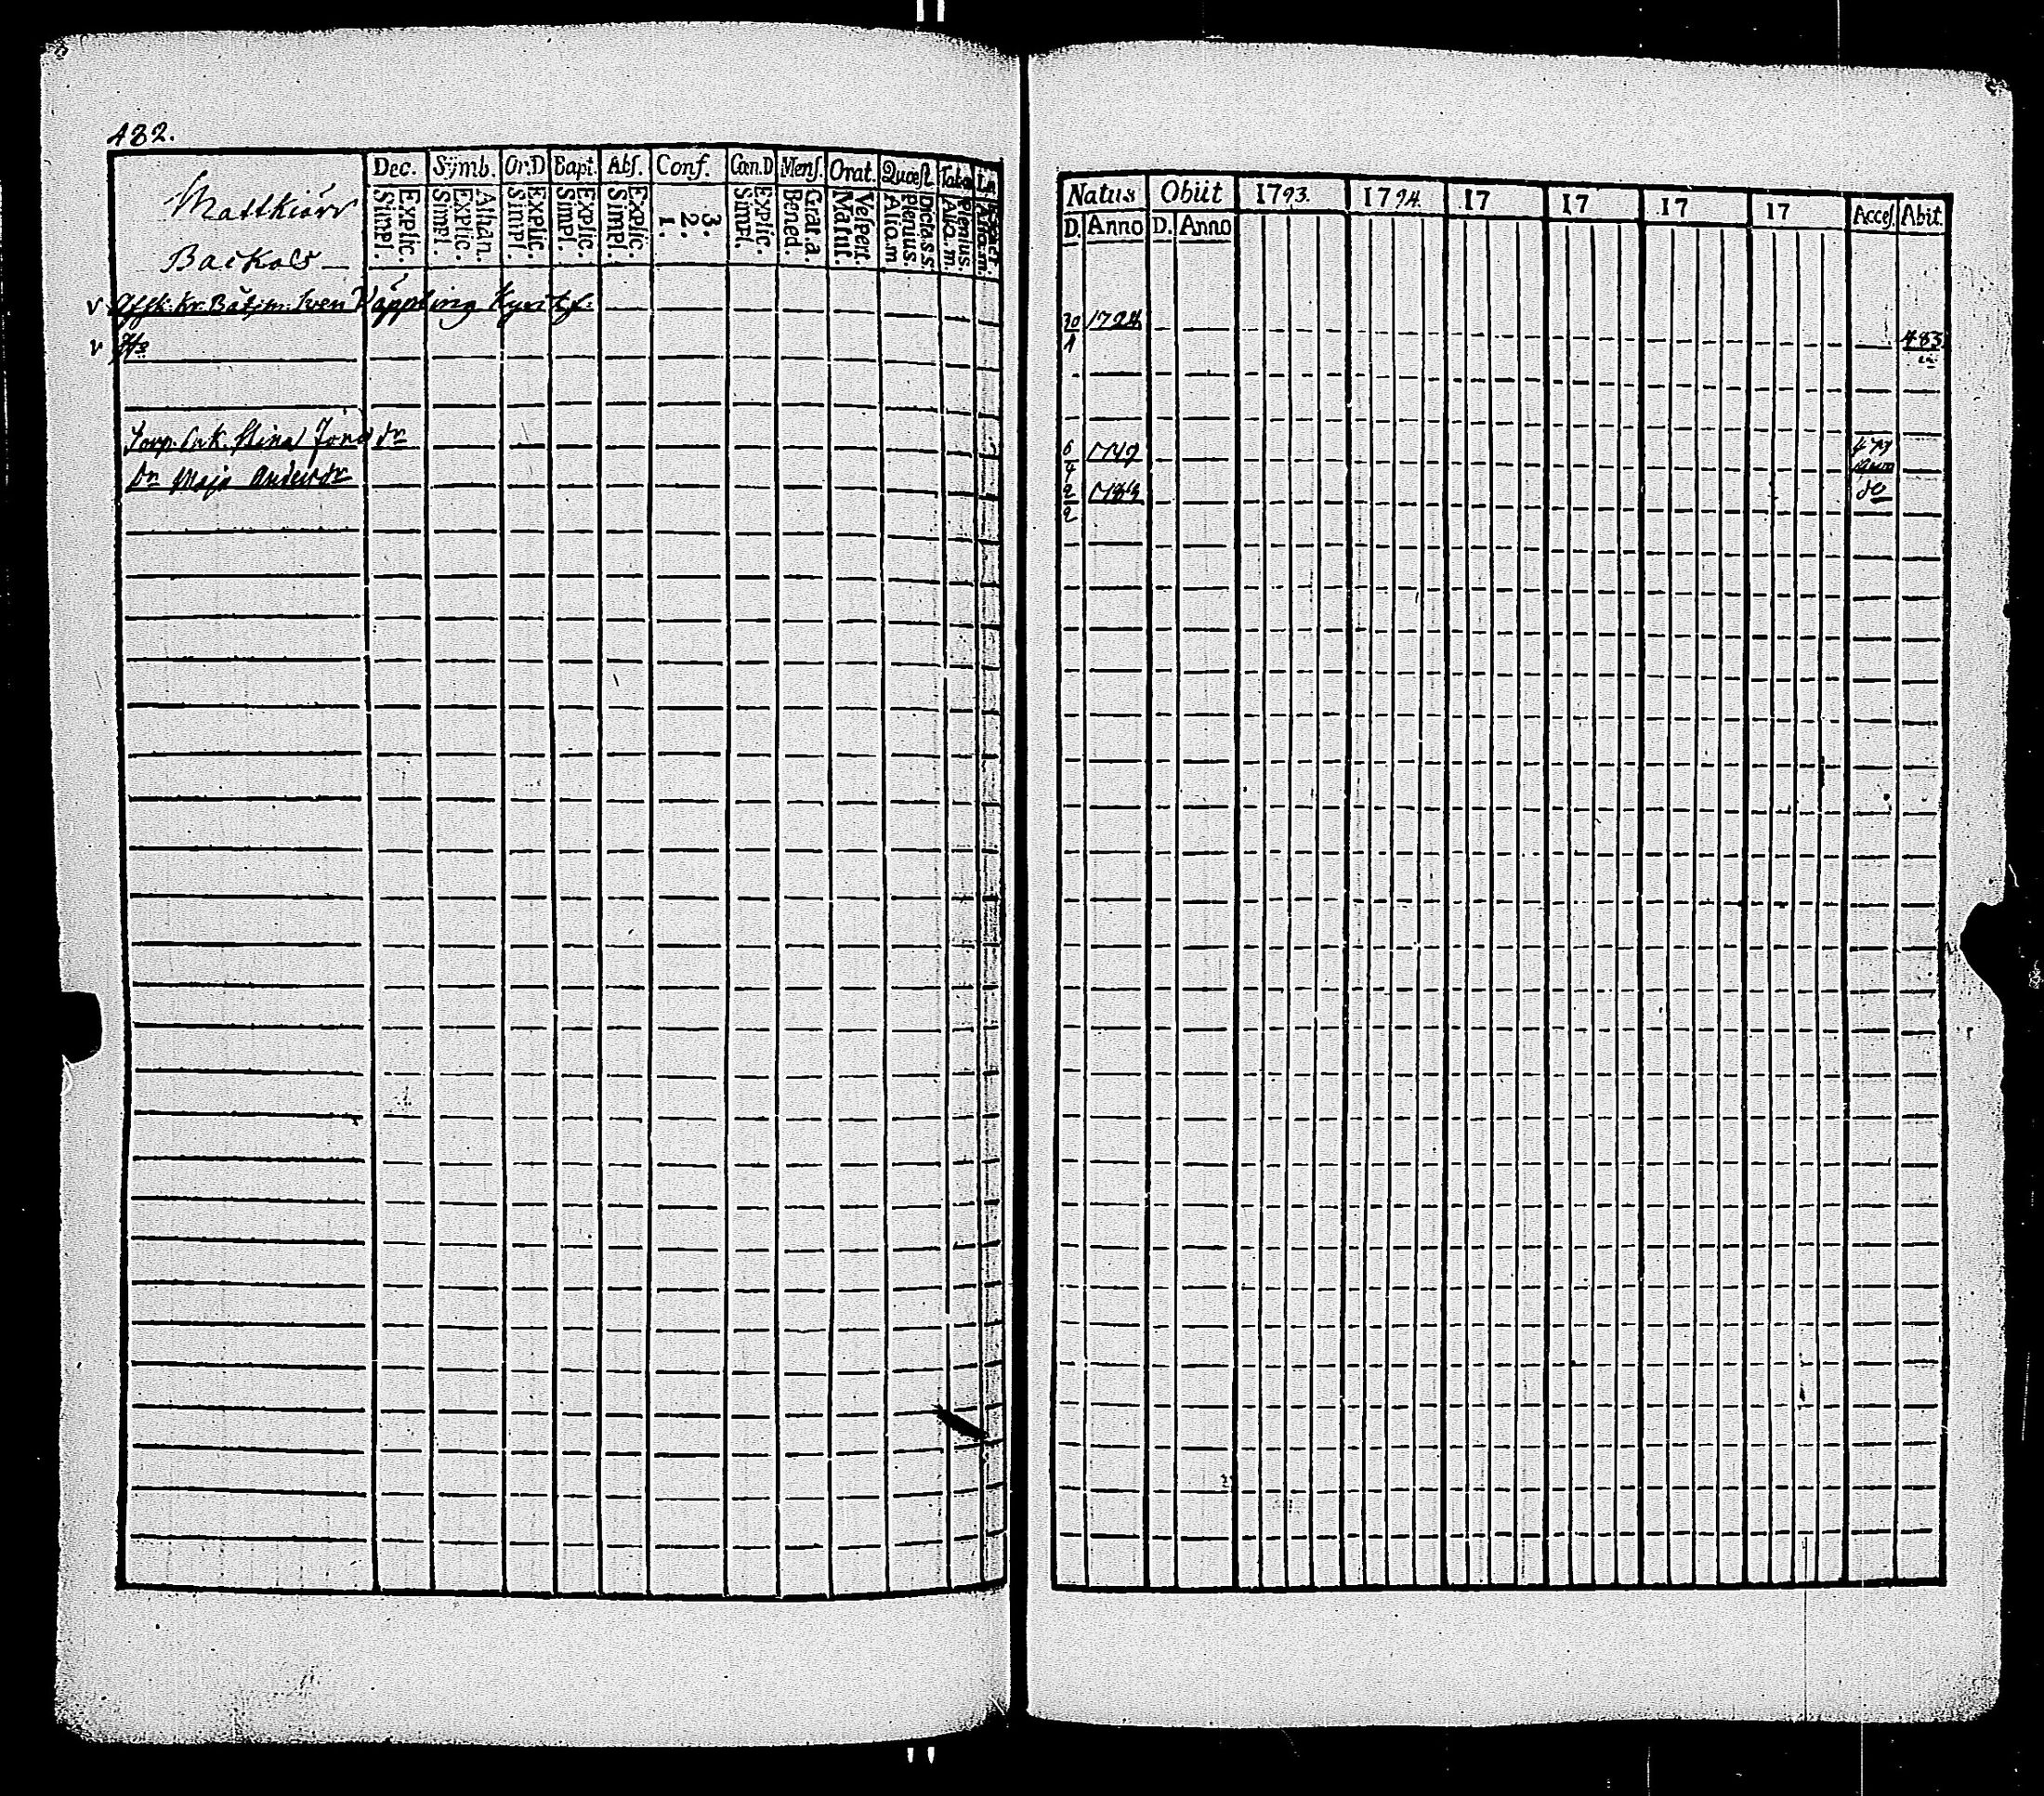 482.
Mattkiärr
Backa
Dec. Symb. Or.D Bapt. Abs. Conf. Cœn.D Mens. Orat. Quæst. Tab.
Explic. Simpl. Athan. Explic. Simpl. Explic. Simpl. Explic. Simpl. Explic. Simpl. 3. 2. 1. Explic. Simpl. Grat. a. Bened. Vespert. Matut. Dicta s.s. Plenius. Alio.m Plenius. Alio.m.
Natus Obiit 1793. 1794. 17 17 17 17 Acces. Abit.
D. Anno D. Anno
v Afsk. Kr. Båtzm. Sven Käppling
30/1 1724
v 483
Torp. Enk. Stina Jonsdr
6/4 1749 479
Dr Maja Andersdr
2/2 1783 do